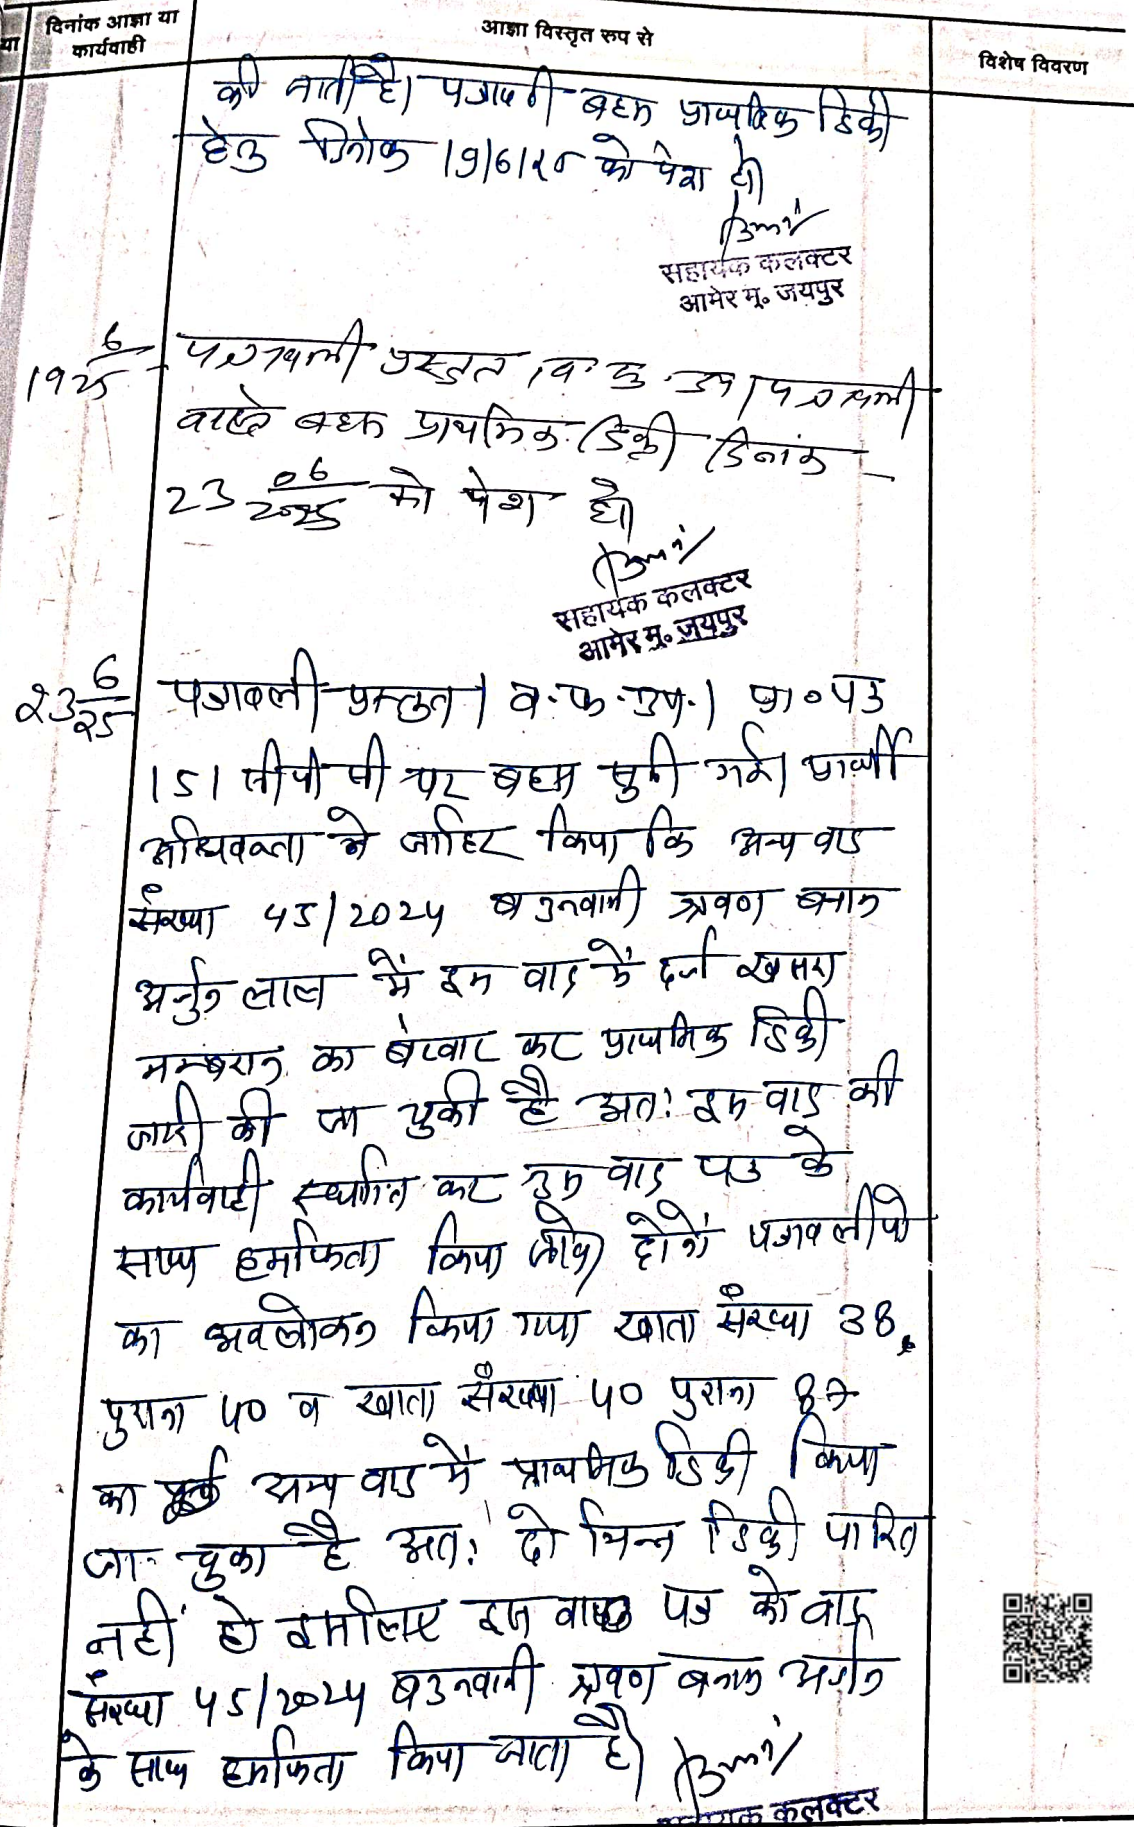 या
दिनांक आज्ञा या
कार्यवाही
आज्ञा विस्तृत रुप से
विशेष विवरण
की जाती है। पत्रावली बहस प्राथमिक डिक्री
हेतु दिनांक 19/6/25 को पेश हो।
सहायक कलक्टर
आमेर मु. जयपुर
19 6/25
पत्रावली प्रस्तुत। व. फ. उप। पत्रावली
वास्ते बहस प्राथमिक डिक्री दिनांक
23 06/2025 को पेश हो।
सहायक कलक्टर
आमेर मु. जयपुर
23 6/25
पत्रावली प्रस्तुत। व.फ.उप.। प्रा॰पत्र
151 सीपीसी पर बहस सुनी गई। प्रार्थी
अधिवक्ता ने जाहिर किया कि अन्य वाद
संख्या 45/2024 बउनवानी श्रवण बनाम
अर्जुन लाल में इस वाद में दर्ज खसरा
नम्बरान का बंटवार कर प्राथमिक डिक्री
जारी की जा चुकी है अतः इस वाद की
कार्यवाही स्थगित कर उस वाद पत्र के
साथ हमफिता किया जावे। दोनों पत्रावलीयो
का अवलोकन किया गया खाता संख्या 38,
पुराना 40 व खाता संख्या 40 पुराना 87
का अन्य वाद में प्राथमिक डिक्री किया
जा चुका है अतः दो भिन्न डिक्री पारित
नहीं हो इसलिए इस वाद पत्र को वाद
संख्या 45/2024 बउनवानी श्रवण बनाम अर्जुन
के साथ हमफिता किया जाता है।
सहायक कलक्टर